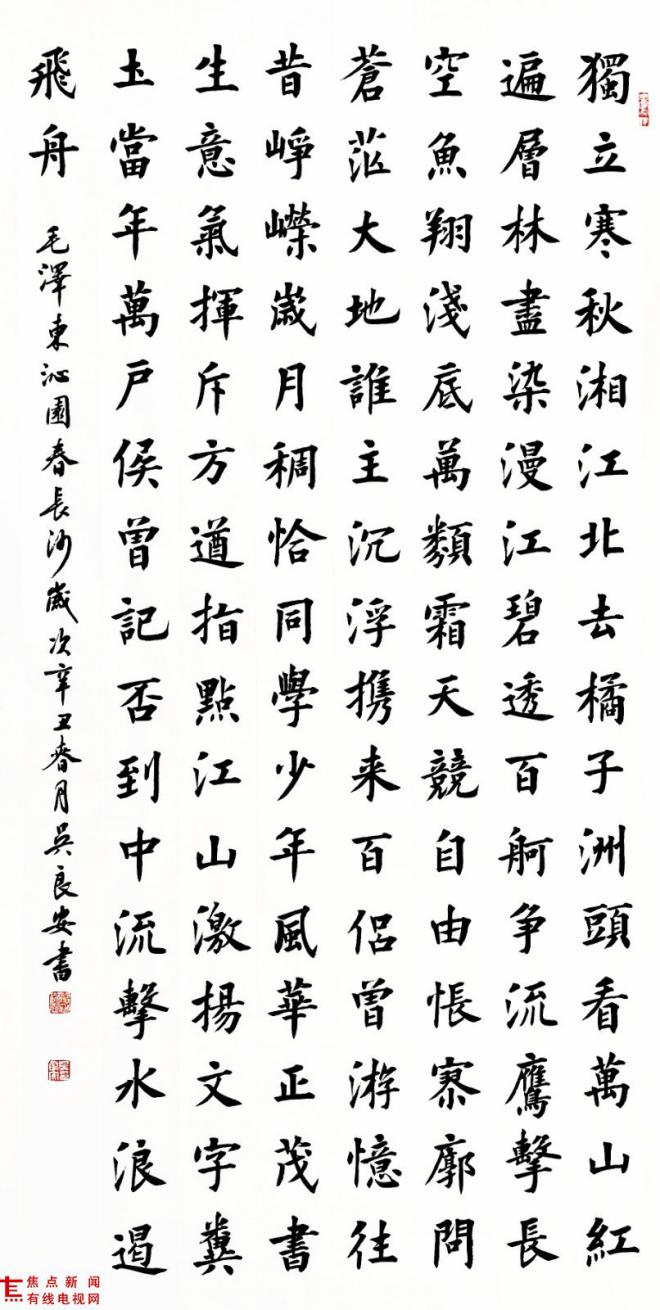 獨立寒秋湘江北去橘子洲頭看萬山紅
遍層林盡染漫江碧透百舸争流鷹擊長
空魚翔淺底萬類霜天競自由悵寥廓問
蒼茫大地誰主沉浮携来百侶曾游憶往
昔崢嶸歲月稠恰同學少年風華正茂書
生意氣揮斥方遒指點江山激揚文字糞
土當年萬户侯曾記否到中流擊水浪遏
飛舟
毛澤東沁園春長沙歲次辛丑春月吳良安書
焦点新闻
有线电视网